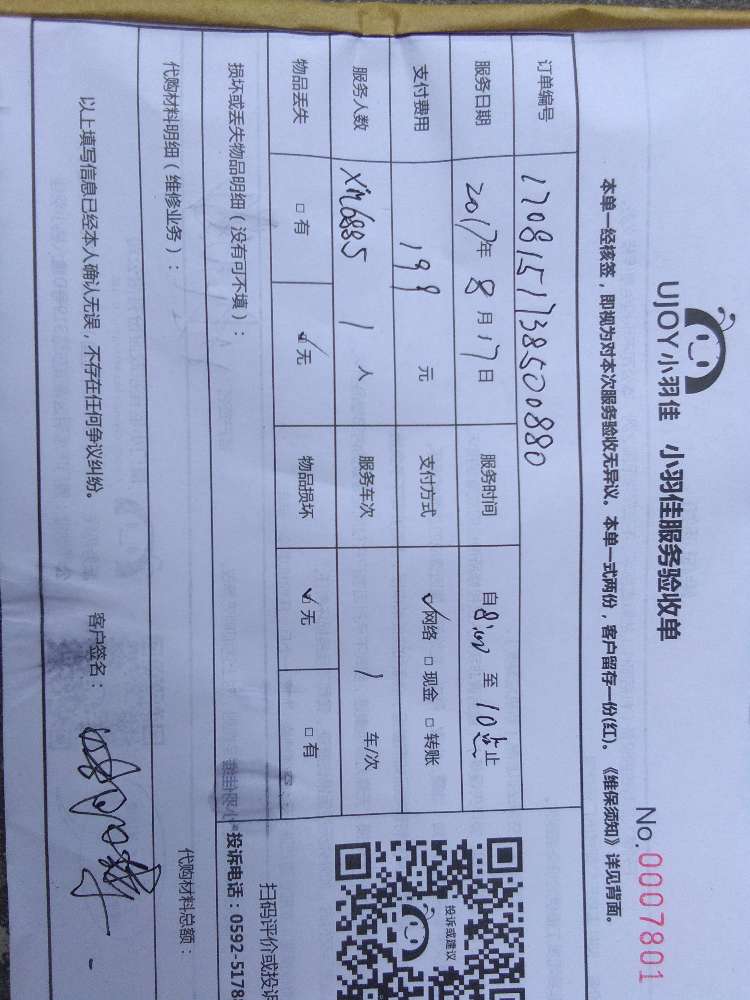 UJOY小羽佳 小羽佳服务验收单
No.0007801
本单一经核签，即视为对本次服务验收无异议。本单一式两份，客户留存一份(红)。《维保须知》详见背面。
订单编号 1708151738500880
服务日期 2017年 8月17日 服务时间 自8:00 至 10 止
支付费用 199 元 支付方式 ✓网络 □现金 □转账
服务人数 XM6835 1 人 服务车次 1 车/次
物品丢失 □有 ✓无 物品损坏 ✓无 □有
损坏或丢失物品明细（没有可不填）：
代购材料明细（维修业务）：
代购材料总额：
以上填写信息已经本人确认无误，不存在任何争议纠纷。 客户签名：
投诉或建议
扫码评价或投诉
投诉电话：0592-5178